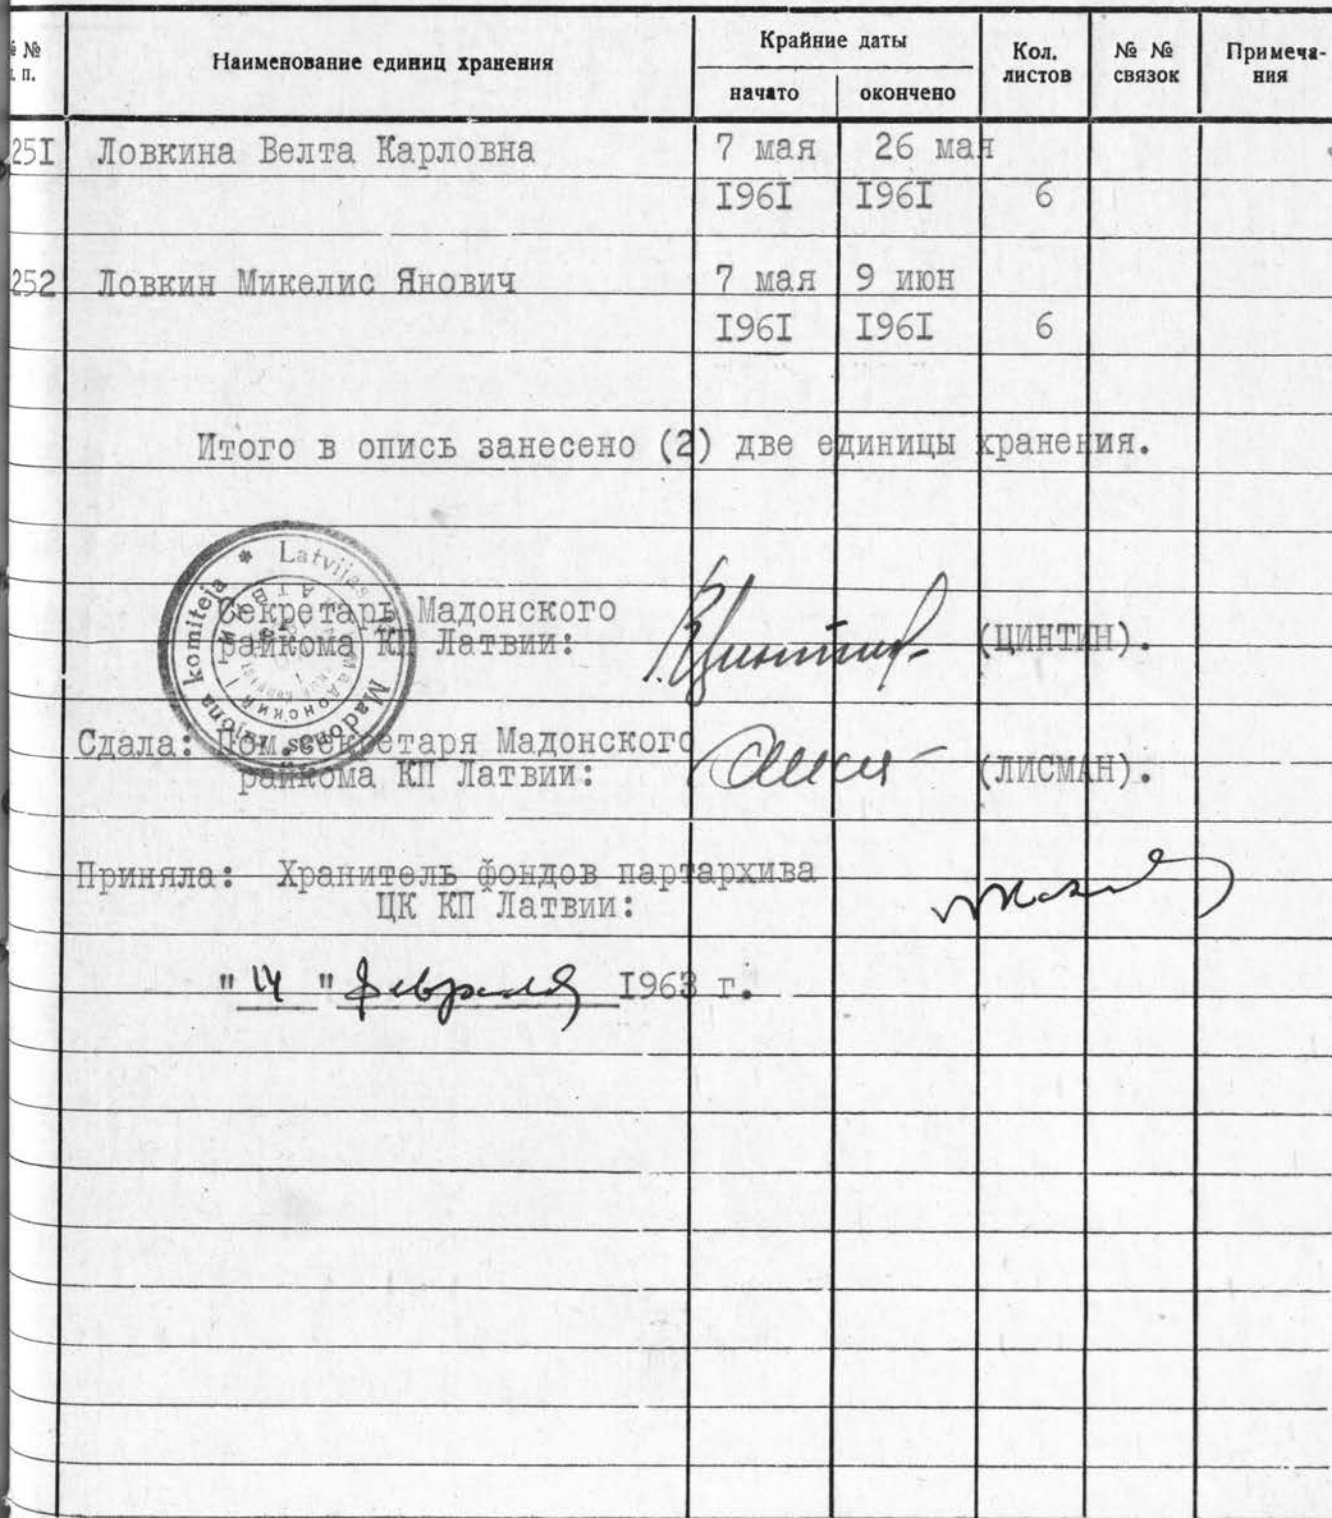 № №
п. п.
Наименование единиц хранения
Крайние даты
начато
окончено
Кол.
листов
№ №
связок
Примеча-
ния
251 Ловкина Велта Карловна 7 мая 26 мая
1961 1961 6
252 Ловкин Микелис Янович 7 мая 9 июн
1961 1961 6
Итого в опись занесено (2) две единицы хранения.
Latvijas
Madonas rajona komiteja
Мадонский
Секретарь Мадонского
райкома КП Латвии: (ЦИНТИН).
Сдала: Пом.секретаря Мадонского
райкома КП Латвии: (ЛИСМАН).
Приняла: Хранитель фондов партархива
ЦК КП Латвии:
"14" февраля 1963 г.